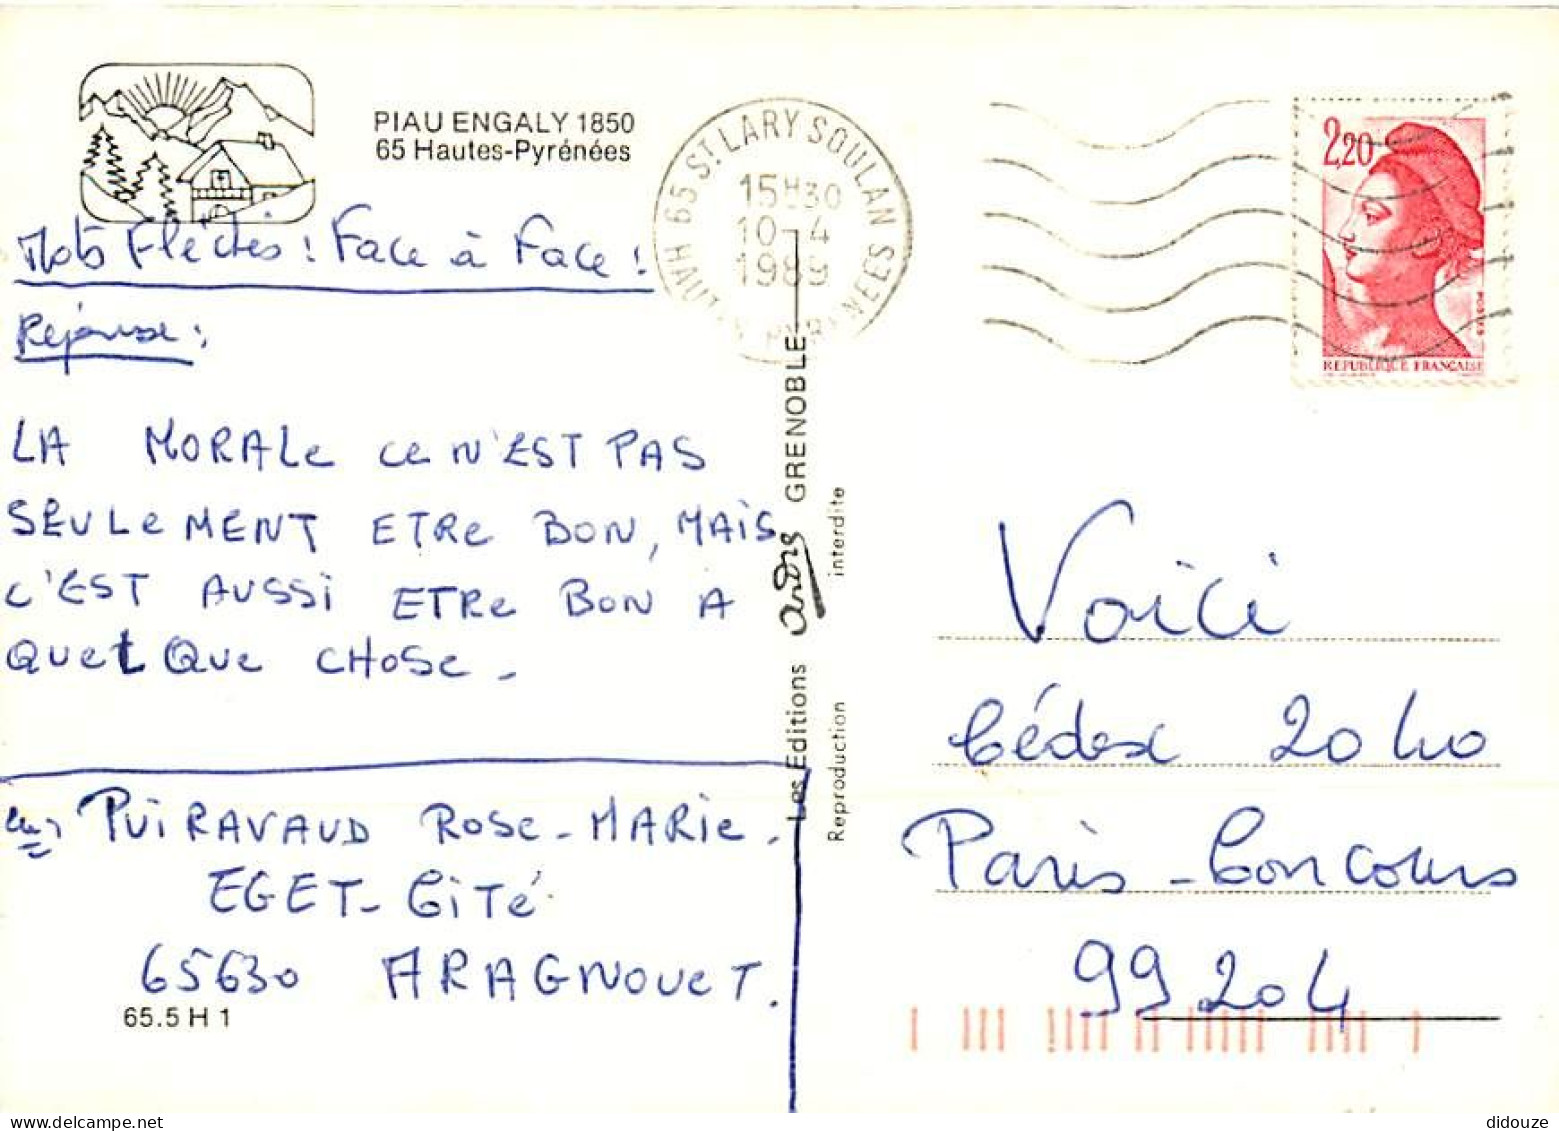 PIAU ENGALY 1850
65 Hautes-Pyrénées
65 ST LARY SOULAN
HAUTES PYRENEES
15H30
10-4
1989
2,20
POSTES
REPUBLIQUE FRANÇAISE
Mots Flèches! Face à Face!
Réponse:
LA MORALE CE N'EST PAS
SEULEMENT ETRE BON, MAIS
C'EST AUSSI ETRE BON A
QUELQUE CHOSE.
PUIRAVAUD ROSE-MARIE.
EGET-CITÉ
65630 ARAGNOUET.
65.5 H 1
Les Editions andré GRENOBLE
Reproduction interdite
Voici
Cédex 2040
Paris-Concours
99204
didouze